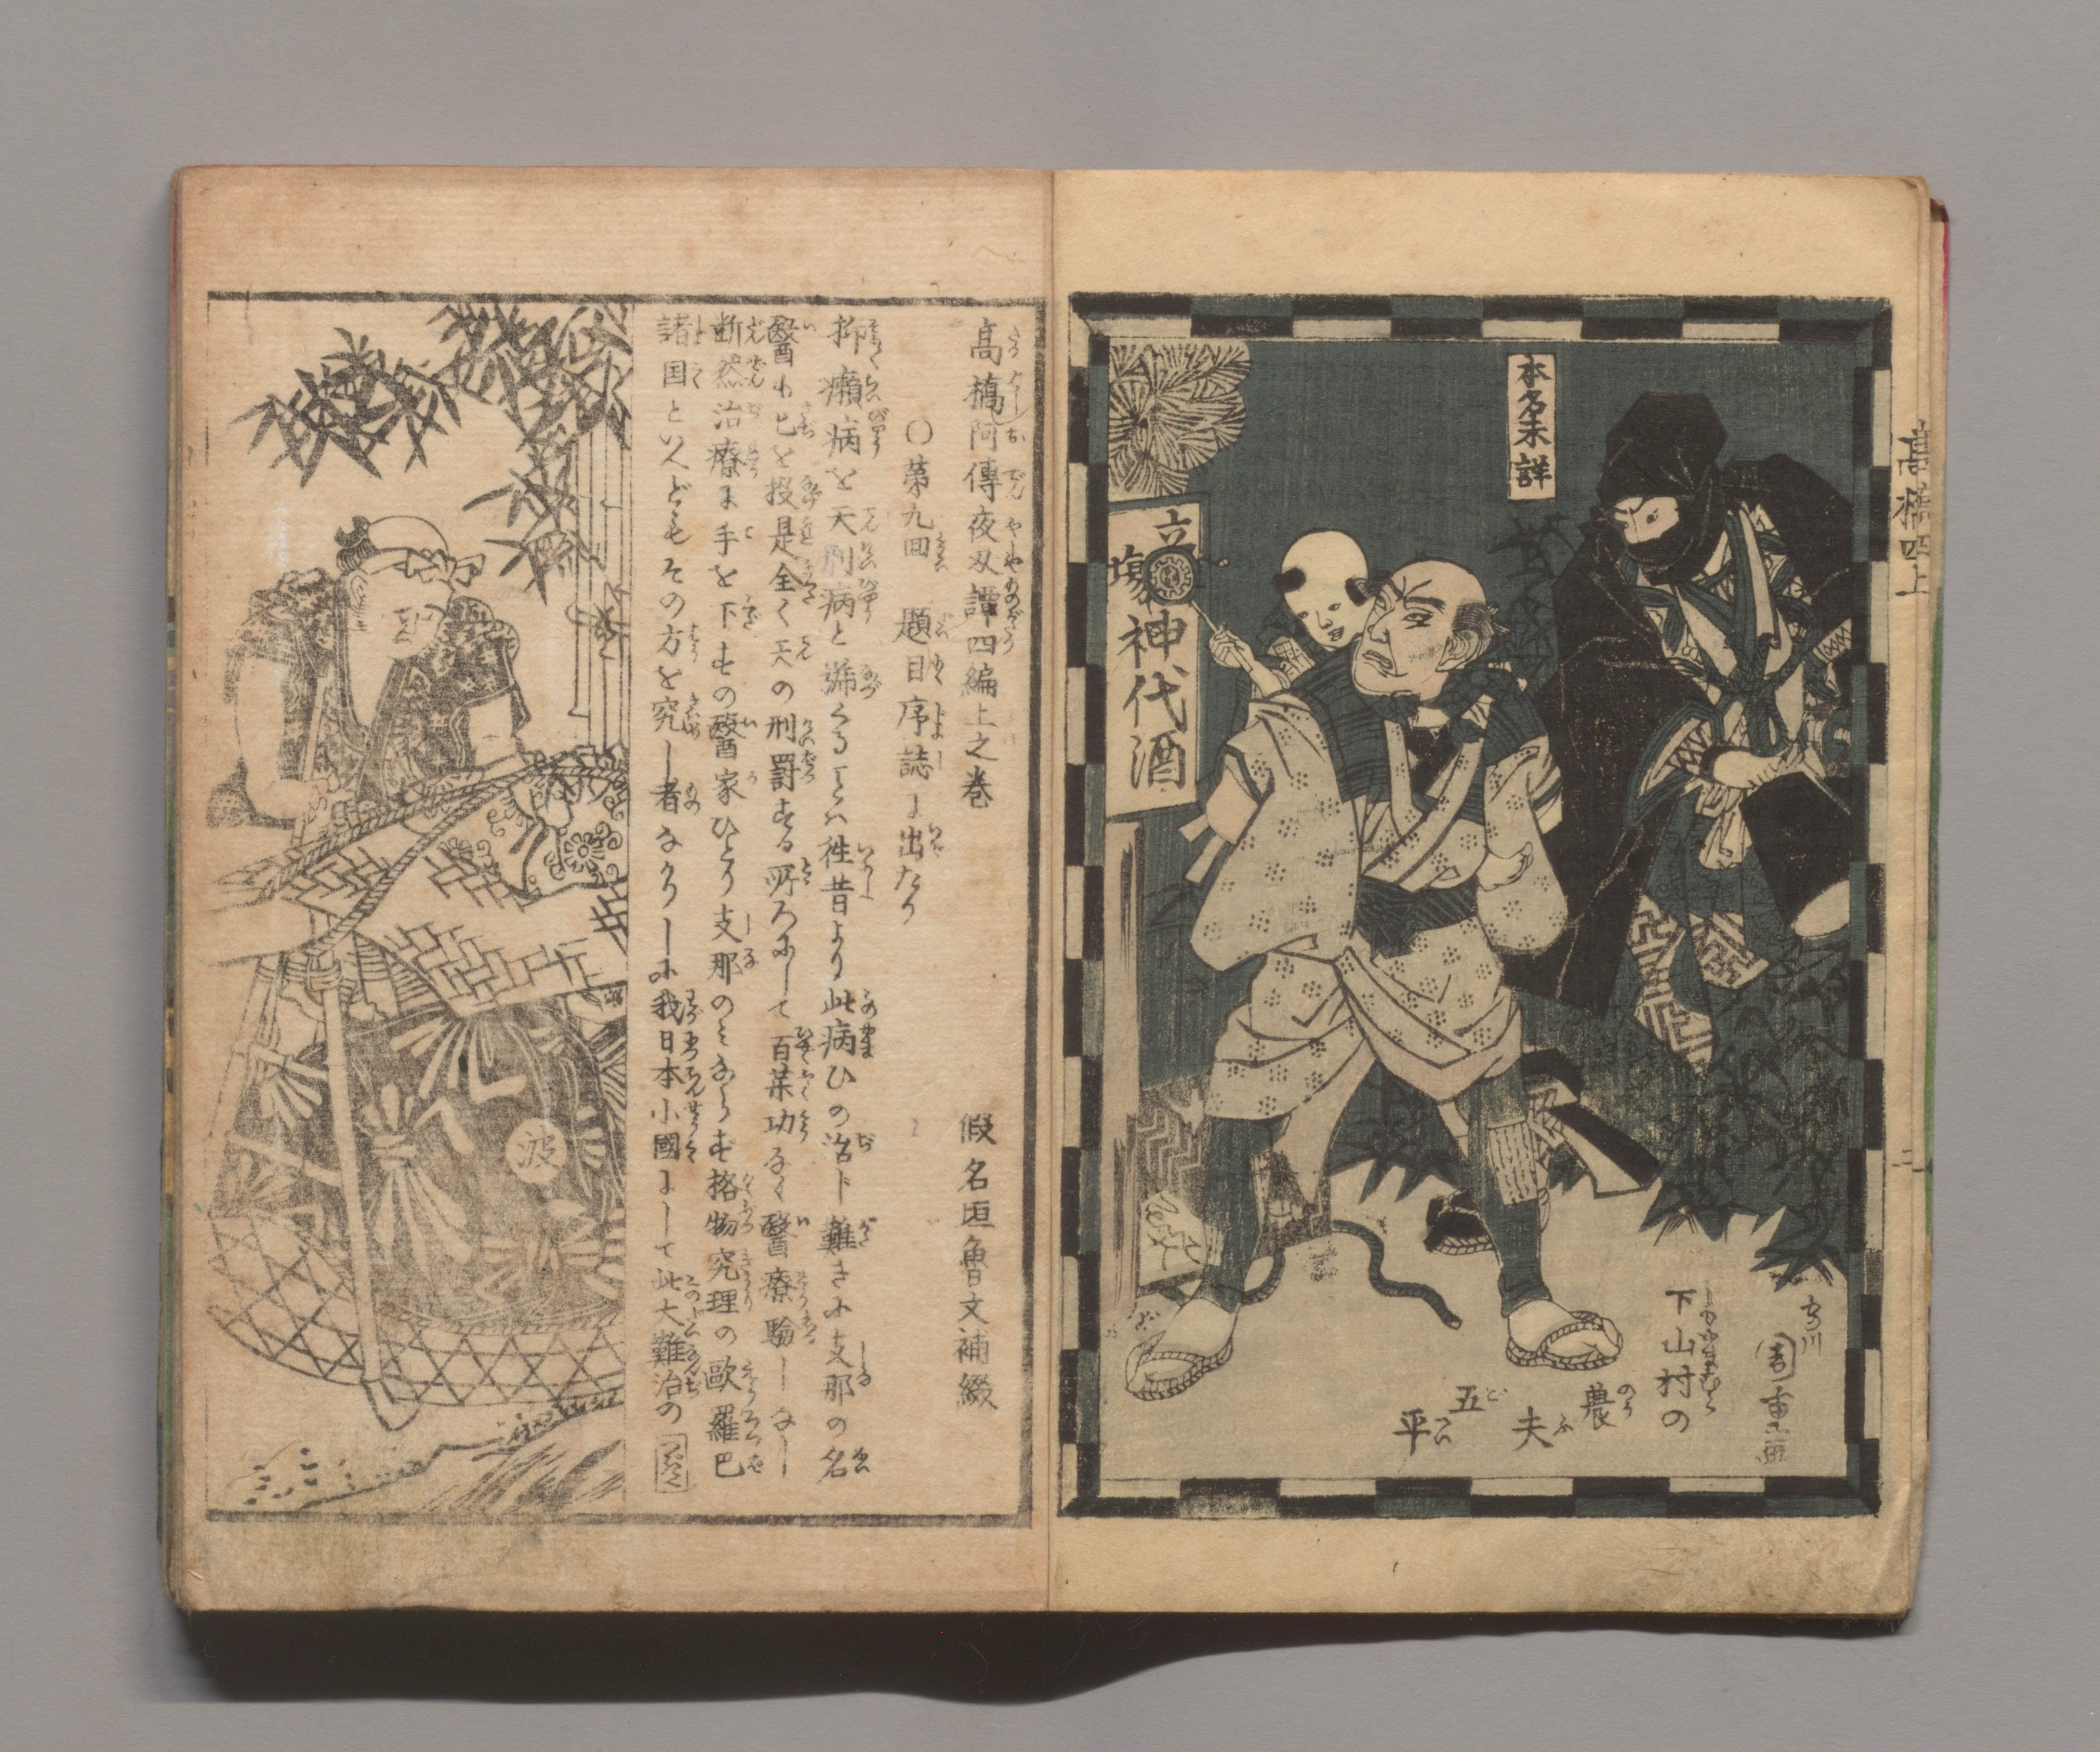 髙槗四上
二
本名未詳
立場
神代酒
守川
周重画
下山村の
農夫
五平
髙槗阿傳夜叉譚四編上之巻
假名垣魯文補綴
〇第九回 題目序誌に出たり
抑癩病を天刑病と号くることハ徃昔より此病ひの治し難きに支那の名
醫も匕を投是全く天の刑罰する所ろにして百薬功なく醫療驗しなし
断然治療に手を下すの醫家ひとり支那のミならず格物究理の歐羅巴
諸国といへどもその方を究し者なかりしに我日本小國にして此大難治の
つぎへ
波